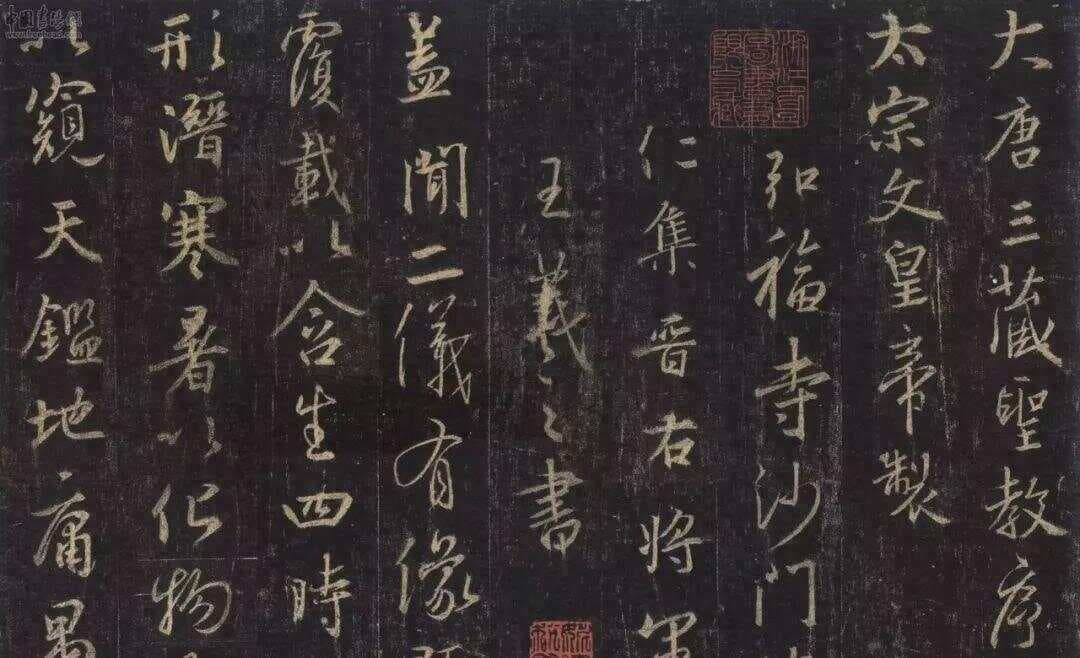 大唐三藏聖教序
太宗文皇帝製
弘福寺沙門
仁集晉右將軍
王羲之書
蓋聞二儀有像
覆載以含生四時
形潛寒暑以化物
以窺天鑑地庸愚
中国书法网